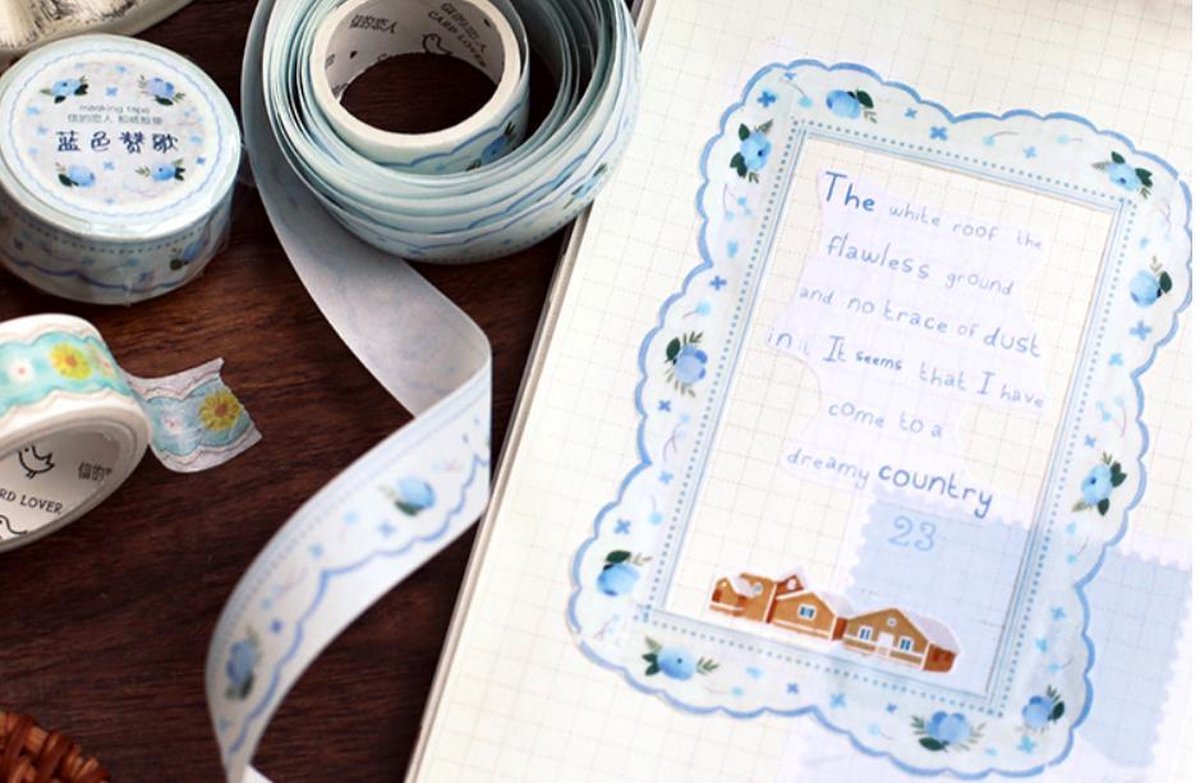 masking tape
信的恋人 和纸胶带
蓝色赞歌
信的恋人
CARD LOVER
信的恋人
CARD LOVER
The white roof the
flawless ground
and no trace of dust
in it It seems that I have
come to a
dreamy country
23